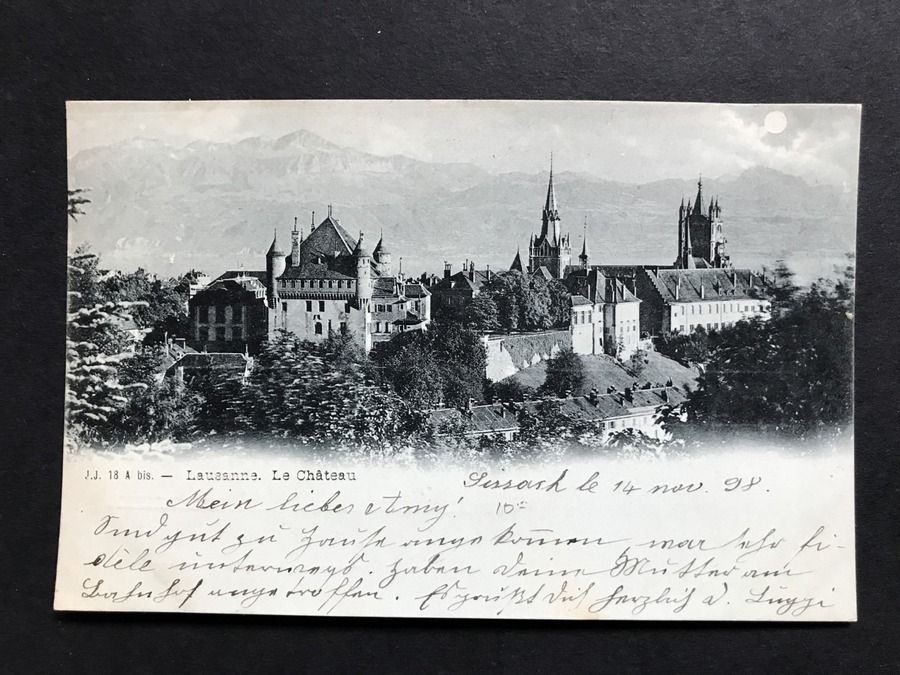 J.J. 18 A bis. — Lausanne. Le Château
Sissach le 14 nov. 98.
Mein liebes Amy!
Sind gut zu Hause angekom̄en, war sehr fi-
dèle unterwegs. Haben deine Mutter am
Bahnhof angetroffen. Es grüßt dich herzlich d. Luggi